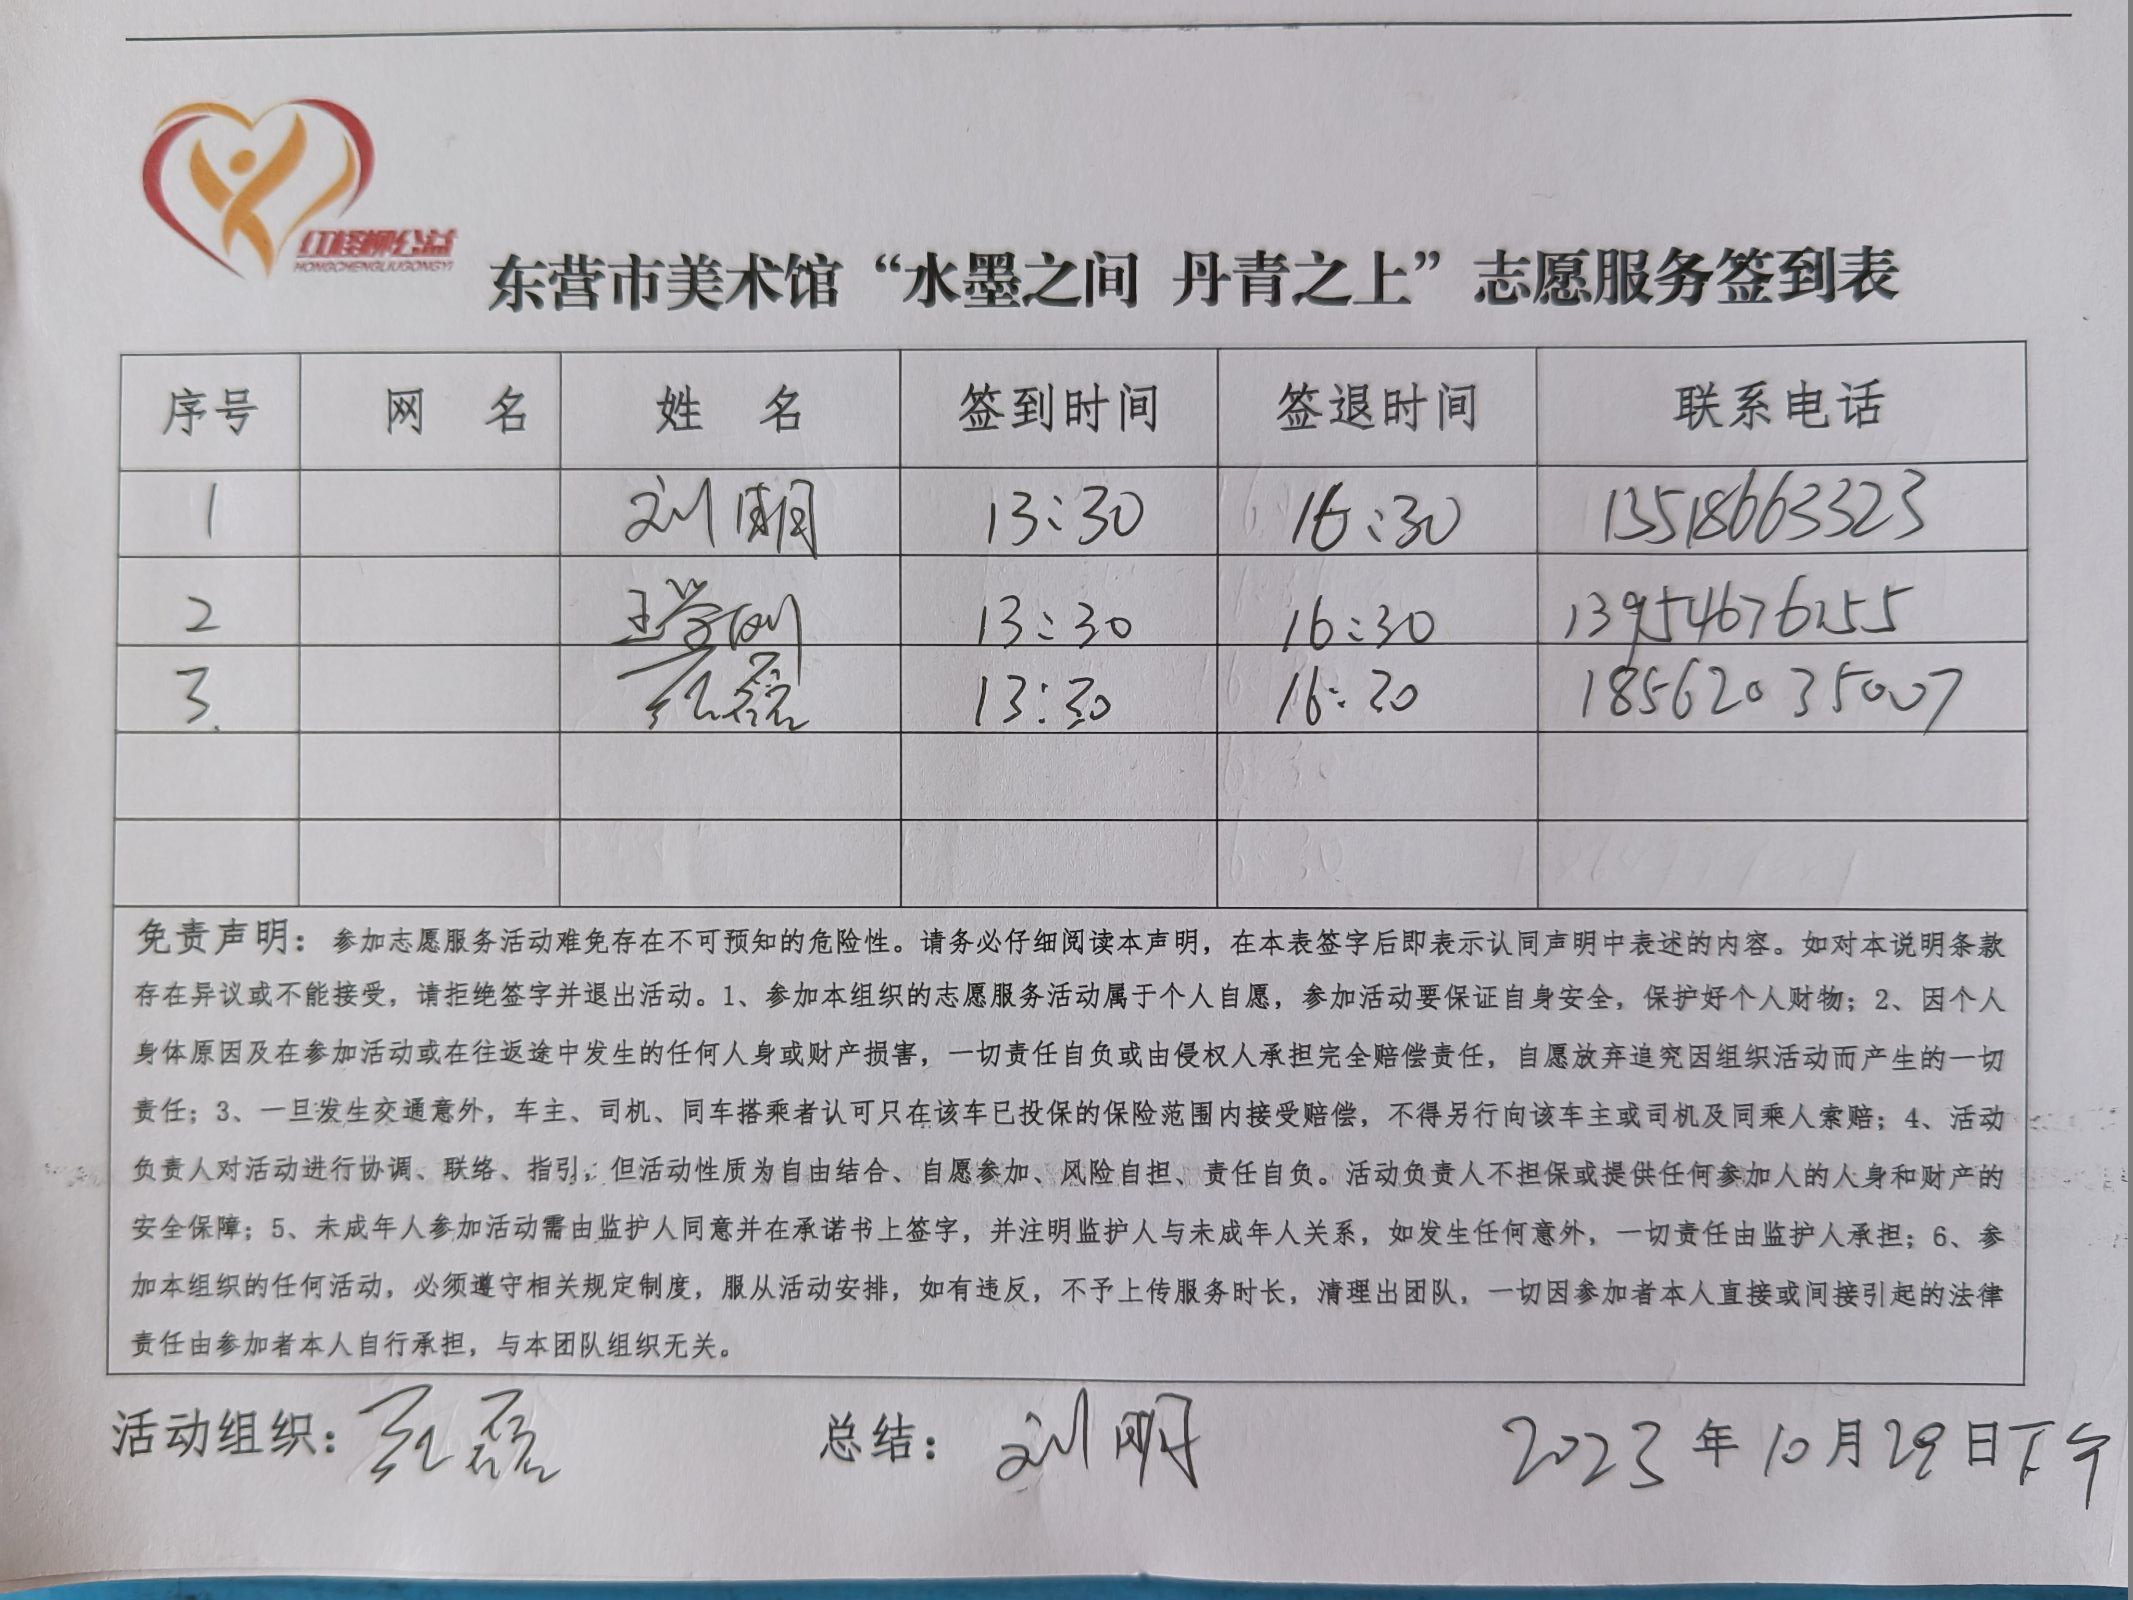 红柽柳公益
HONGCHENGLIUGONGYI
东营市美术馆“水墨之间 丹青之上”志愿服务签到表
序号 网 名 姓 名 签到时间 签退时间 联系电话
1 刘明 13:30 16:30 13518663323
2 王学刚 13:30 16:30 13954676255
3. 13:30 16:30
免责声明：参加志愿服务活动难免存在不可预知的危险性。请务必仔细阅读本声明，在本表签字后即表示认同声明中表述的内容。如对本说明条款
存在异议或不能接受，请拒绝签字并退出活动。1、参加本组织的志愿服务活动属于个人自愿，参加活动要保证自身安全，保护好个人财物；2、因个人
身体原因及在参加活动或在往返途中发生的任何人身或财产损害，一切责任自负或由侵权人承担完全赔偿责任，自愿放弃追究因组织活动而产生的一切
责任；3、一旦发生交通意外，车主、司机、同车搭乘者认可只在该车已投保的保险范围内接受赔偿，不得另行向该车主或司机及同乘人索赔；4、活动
负责人对活动进行协调、联络、指引，但活动性质为自由结合、自愿参加、风险自担、责任自负。活动负责人不担保或提供任何参加人的人身和财产的
安全保障；5、未成年人参加活动需由监护人同意并在承诺书上签字，并注明监护人与未成年人关系，如发生任何意外，一切责任由监护人承担；6、参
加本组织的任何活动，必须遵守相关规定制度，服从活动安排，如有违反，不予上传服务时长，清理出团队，一切因参加者本人直接或间接引起的法律
责任由参加者本人自行承担，与本团队组织无关。
活动组织： 总结：刘明 2023年10月29日下午